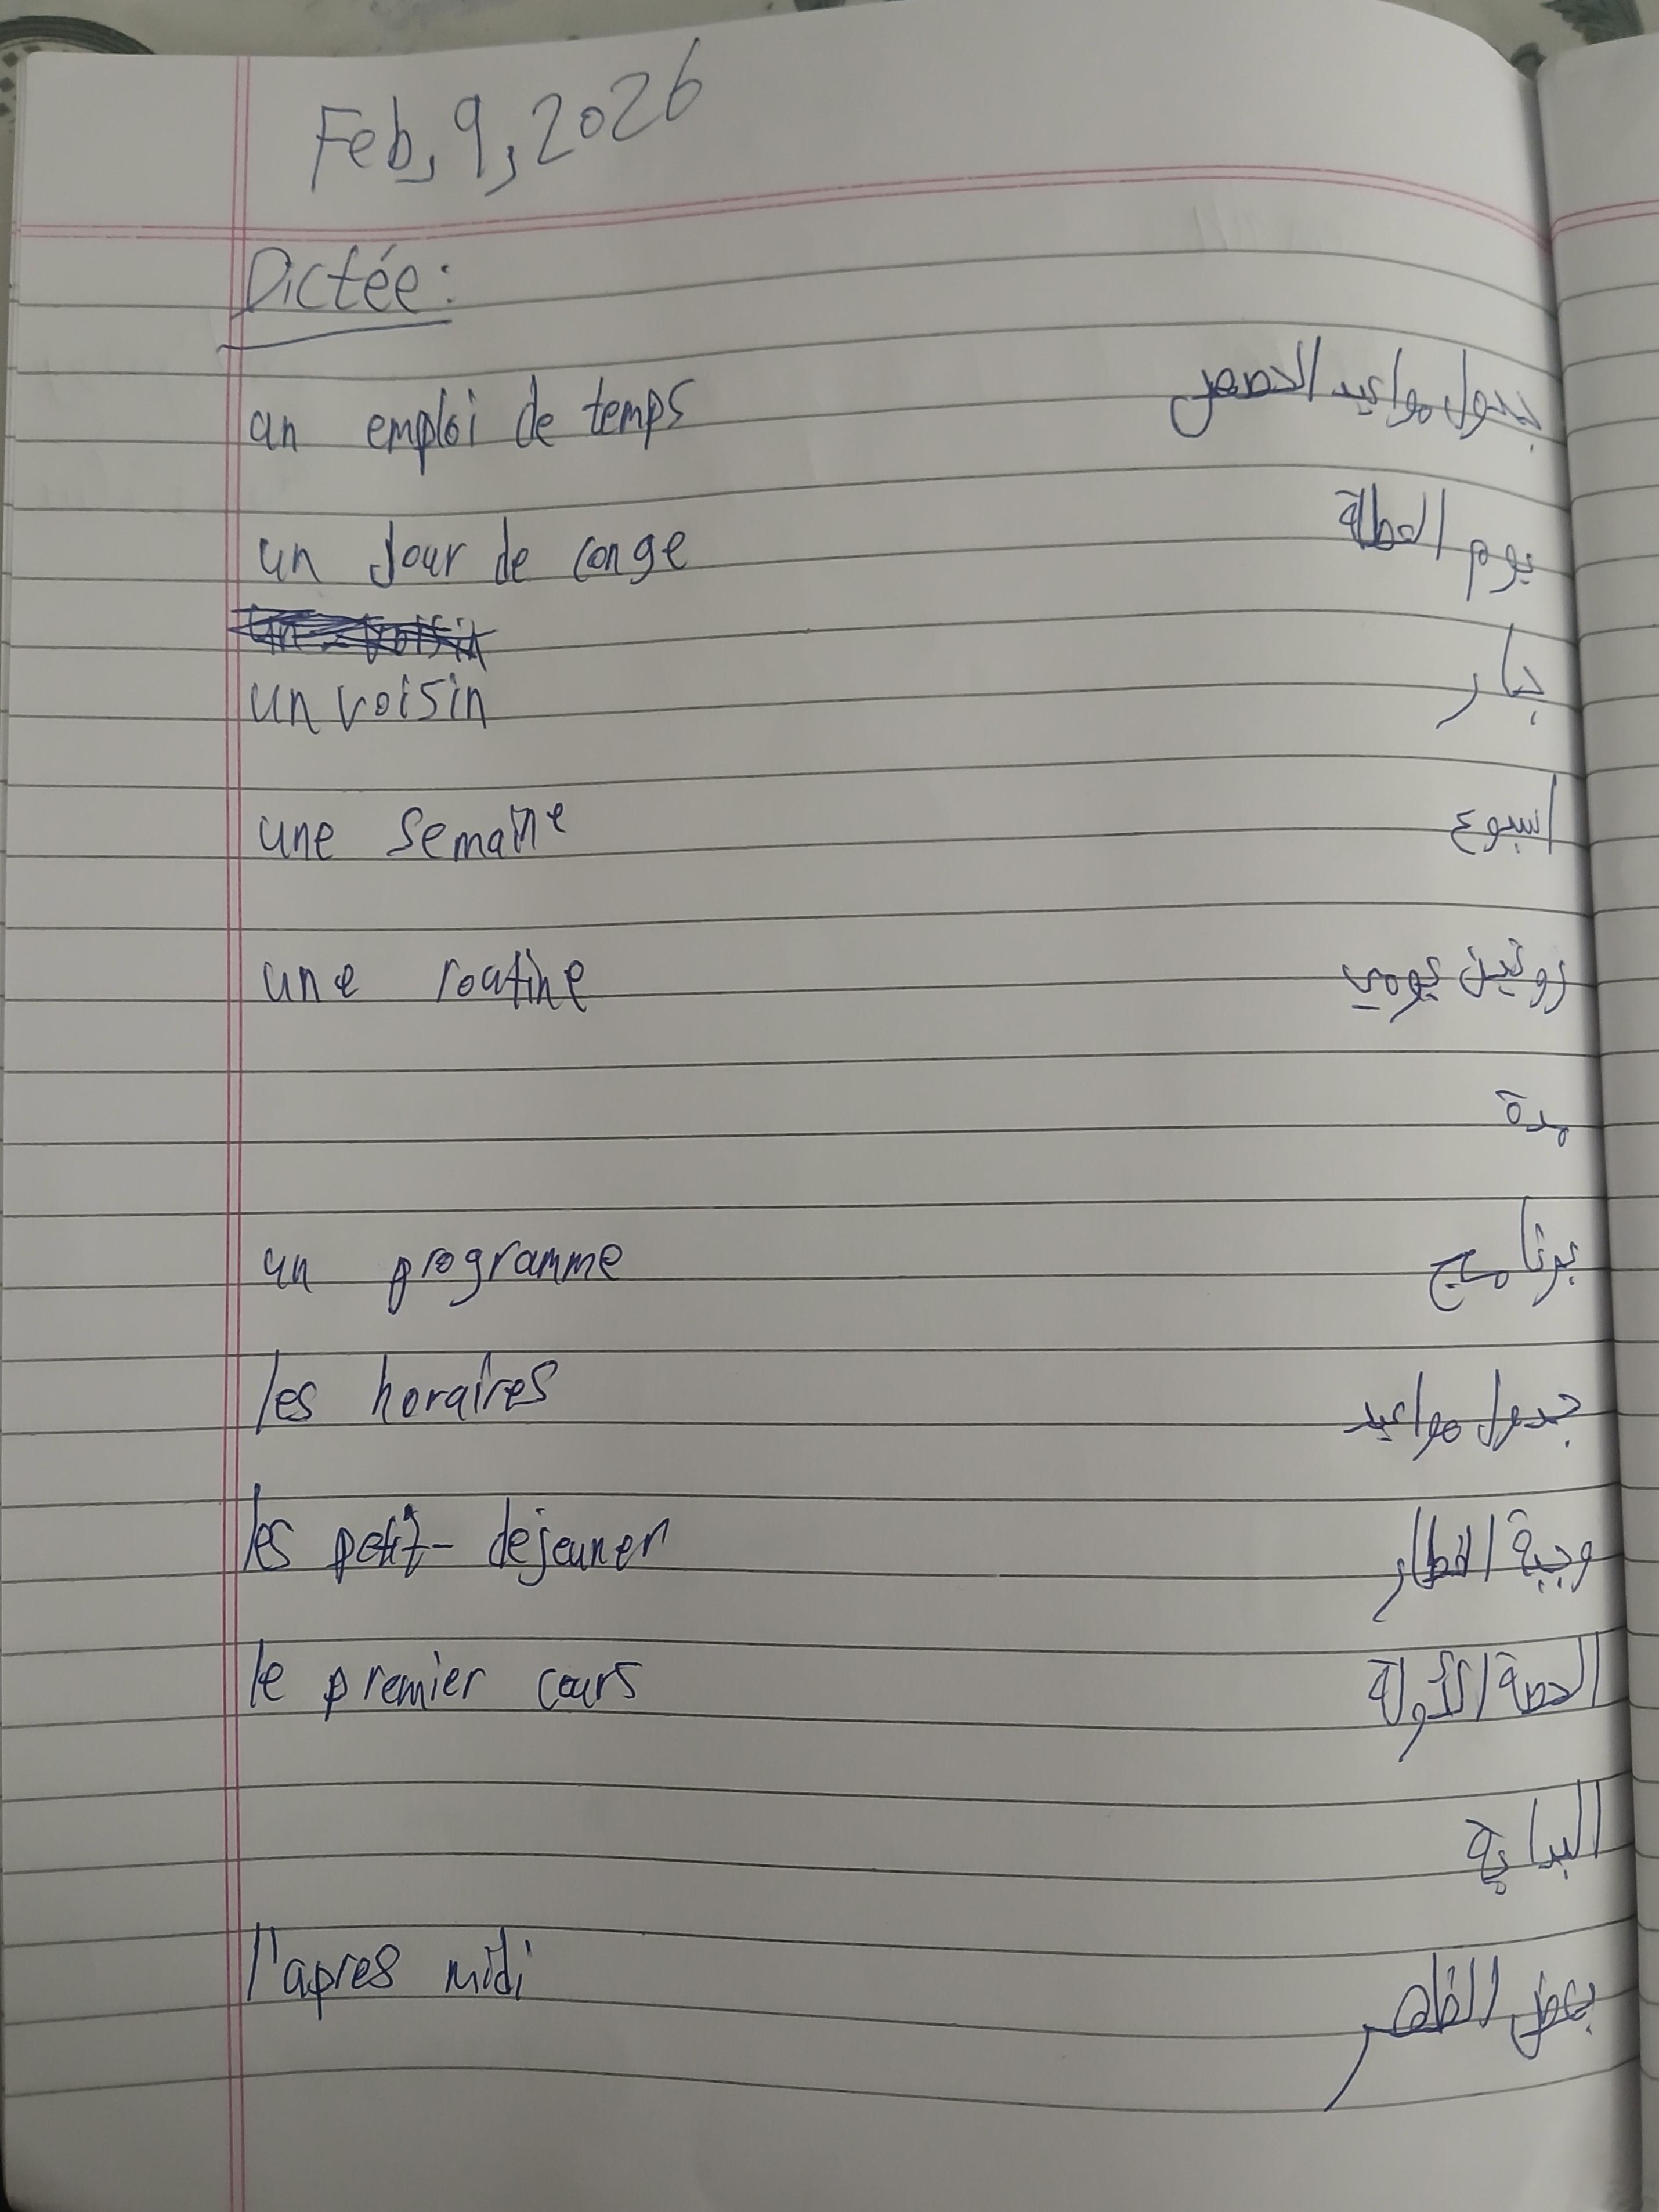 Feb, 9, 2026
Dictée:
an emploi de temps جدول مواعيد الحصص
un Jour de conge يوم العطلة
un voisin جار
une semaine اسبوع
une routine روتين يومي
مدة
un programme برنامج
les horaires جدول مواعيد
les petit-dejeuner وجبة الفطار
le premier cours الحصة الأولة
l'apres midi بعض الظهر